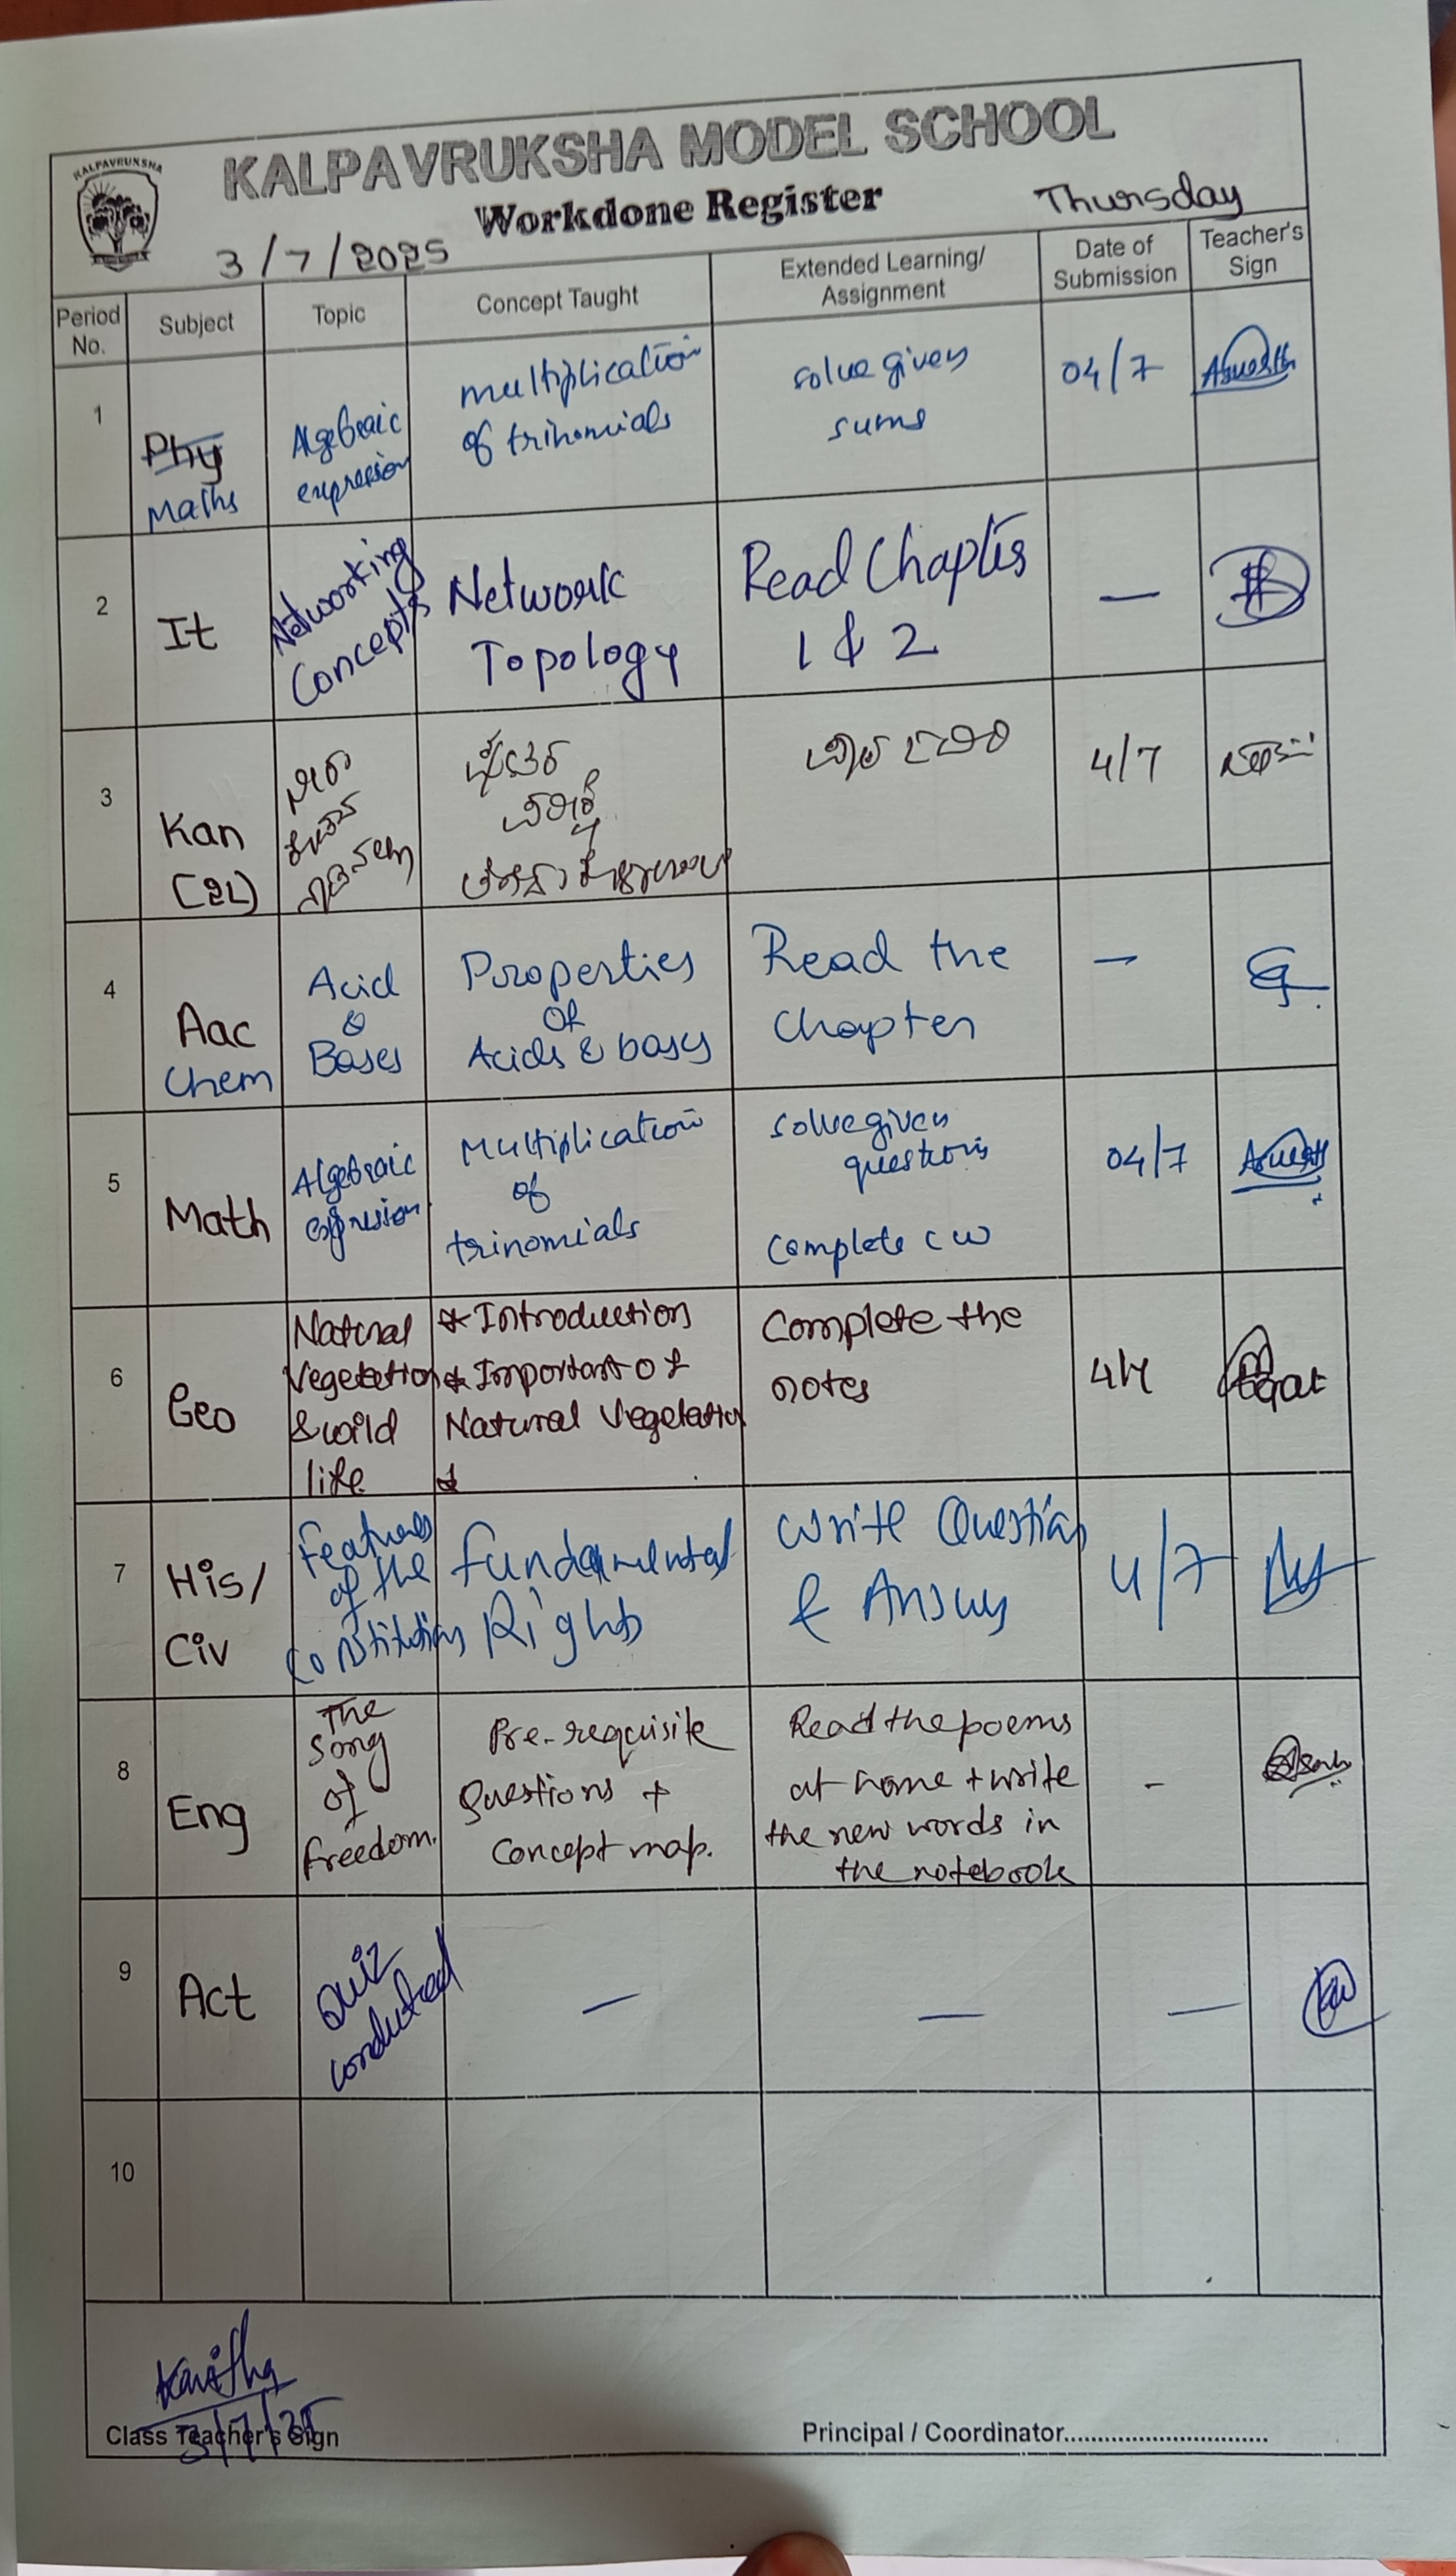 KALPAVRUKSHA
KALPAVRUKSHA MODEL SCHOOL
Workdone Register
Thursday
3/7/2025
Period No.
Subject
Topic
Concept Taught
Extended Learning/
Assignment
Date of
Submission
Teacher's
Sign
1
Phy
Maths
Algebraic
expression
multiplication
of trinomials
solve given
sums
04/7
2
It
Networking
Concepts
Network
Topology
Read Chapters
1 & 2
—
3
Kan
(2L)
4/7
4
Aac
Chem
Acid
&
Bases
Properties
of
Acids & bases
Read the
Chapter
—
5
Math
Algebraic
expression
Multiplication
of
trinomials
solve given
questions
Complete cw
04/7
6
Geo
Natural
Vegetation
& wild
life
* Introduction
* Important of
Natural Vegetation
Complete the
notes
4/7
7
His/
Civ
Features
of the
Constitution
Fundamental
Rights
Write Question
& Answer
4/7
8
Eng
The
Song
of
freedom.
Pre-requisite
Questions +
Concept map.
Read the poems
at home + write
the new words in
the notebook
-
9
Act
Quiz
conducted
—
—
—
10
Kavitha
3/7/25
Class Teacher's Sign
Principal / Coordinator..............................